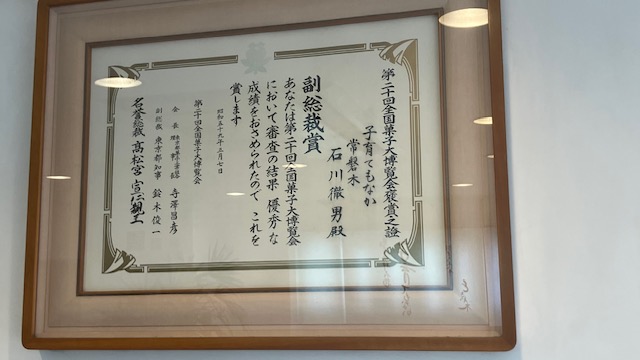 第二十回全国菓子大博覧会褒賞之證
子育てもなか
常磐木
石川徹男殿
副総裁賞
あなたは第二十回全国菓子大博覧会
において審査の結果 優秀な
成績をおさめられたので これを
賞します
昭和五十九年三月七日
第二十回全国菓子大博覧会
会長
寺澤昌彦
副総裁 東京都知事 鈴木俊一
名誉総裁 高松宮宣仁親王